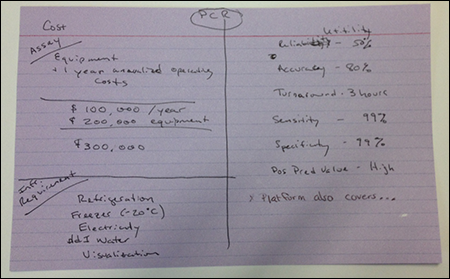 PCR
Cost
Assay
Equipment
+ 1 year annualized operating
costs
$ 100,000 /year
$ 200,000 equipment
$300,000
Infr.
Requirement
Refrigeration
Freezers (-20°C)
Electricity
ddI Water
Visualization
Utility
Reliability - 50%
Accuracy - 80%
Turnaround - 3 hours
Sensitivity - 99%
Specificity - 99%
Pos Pred Value - High
Platform also covers...